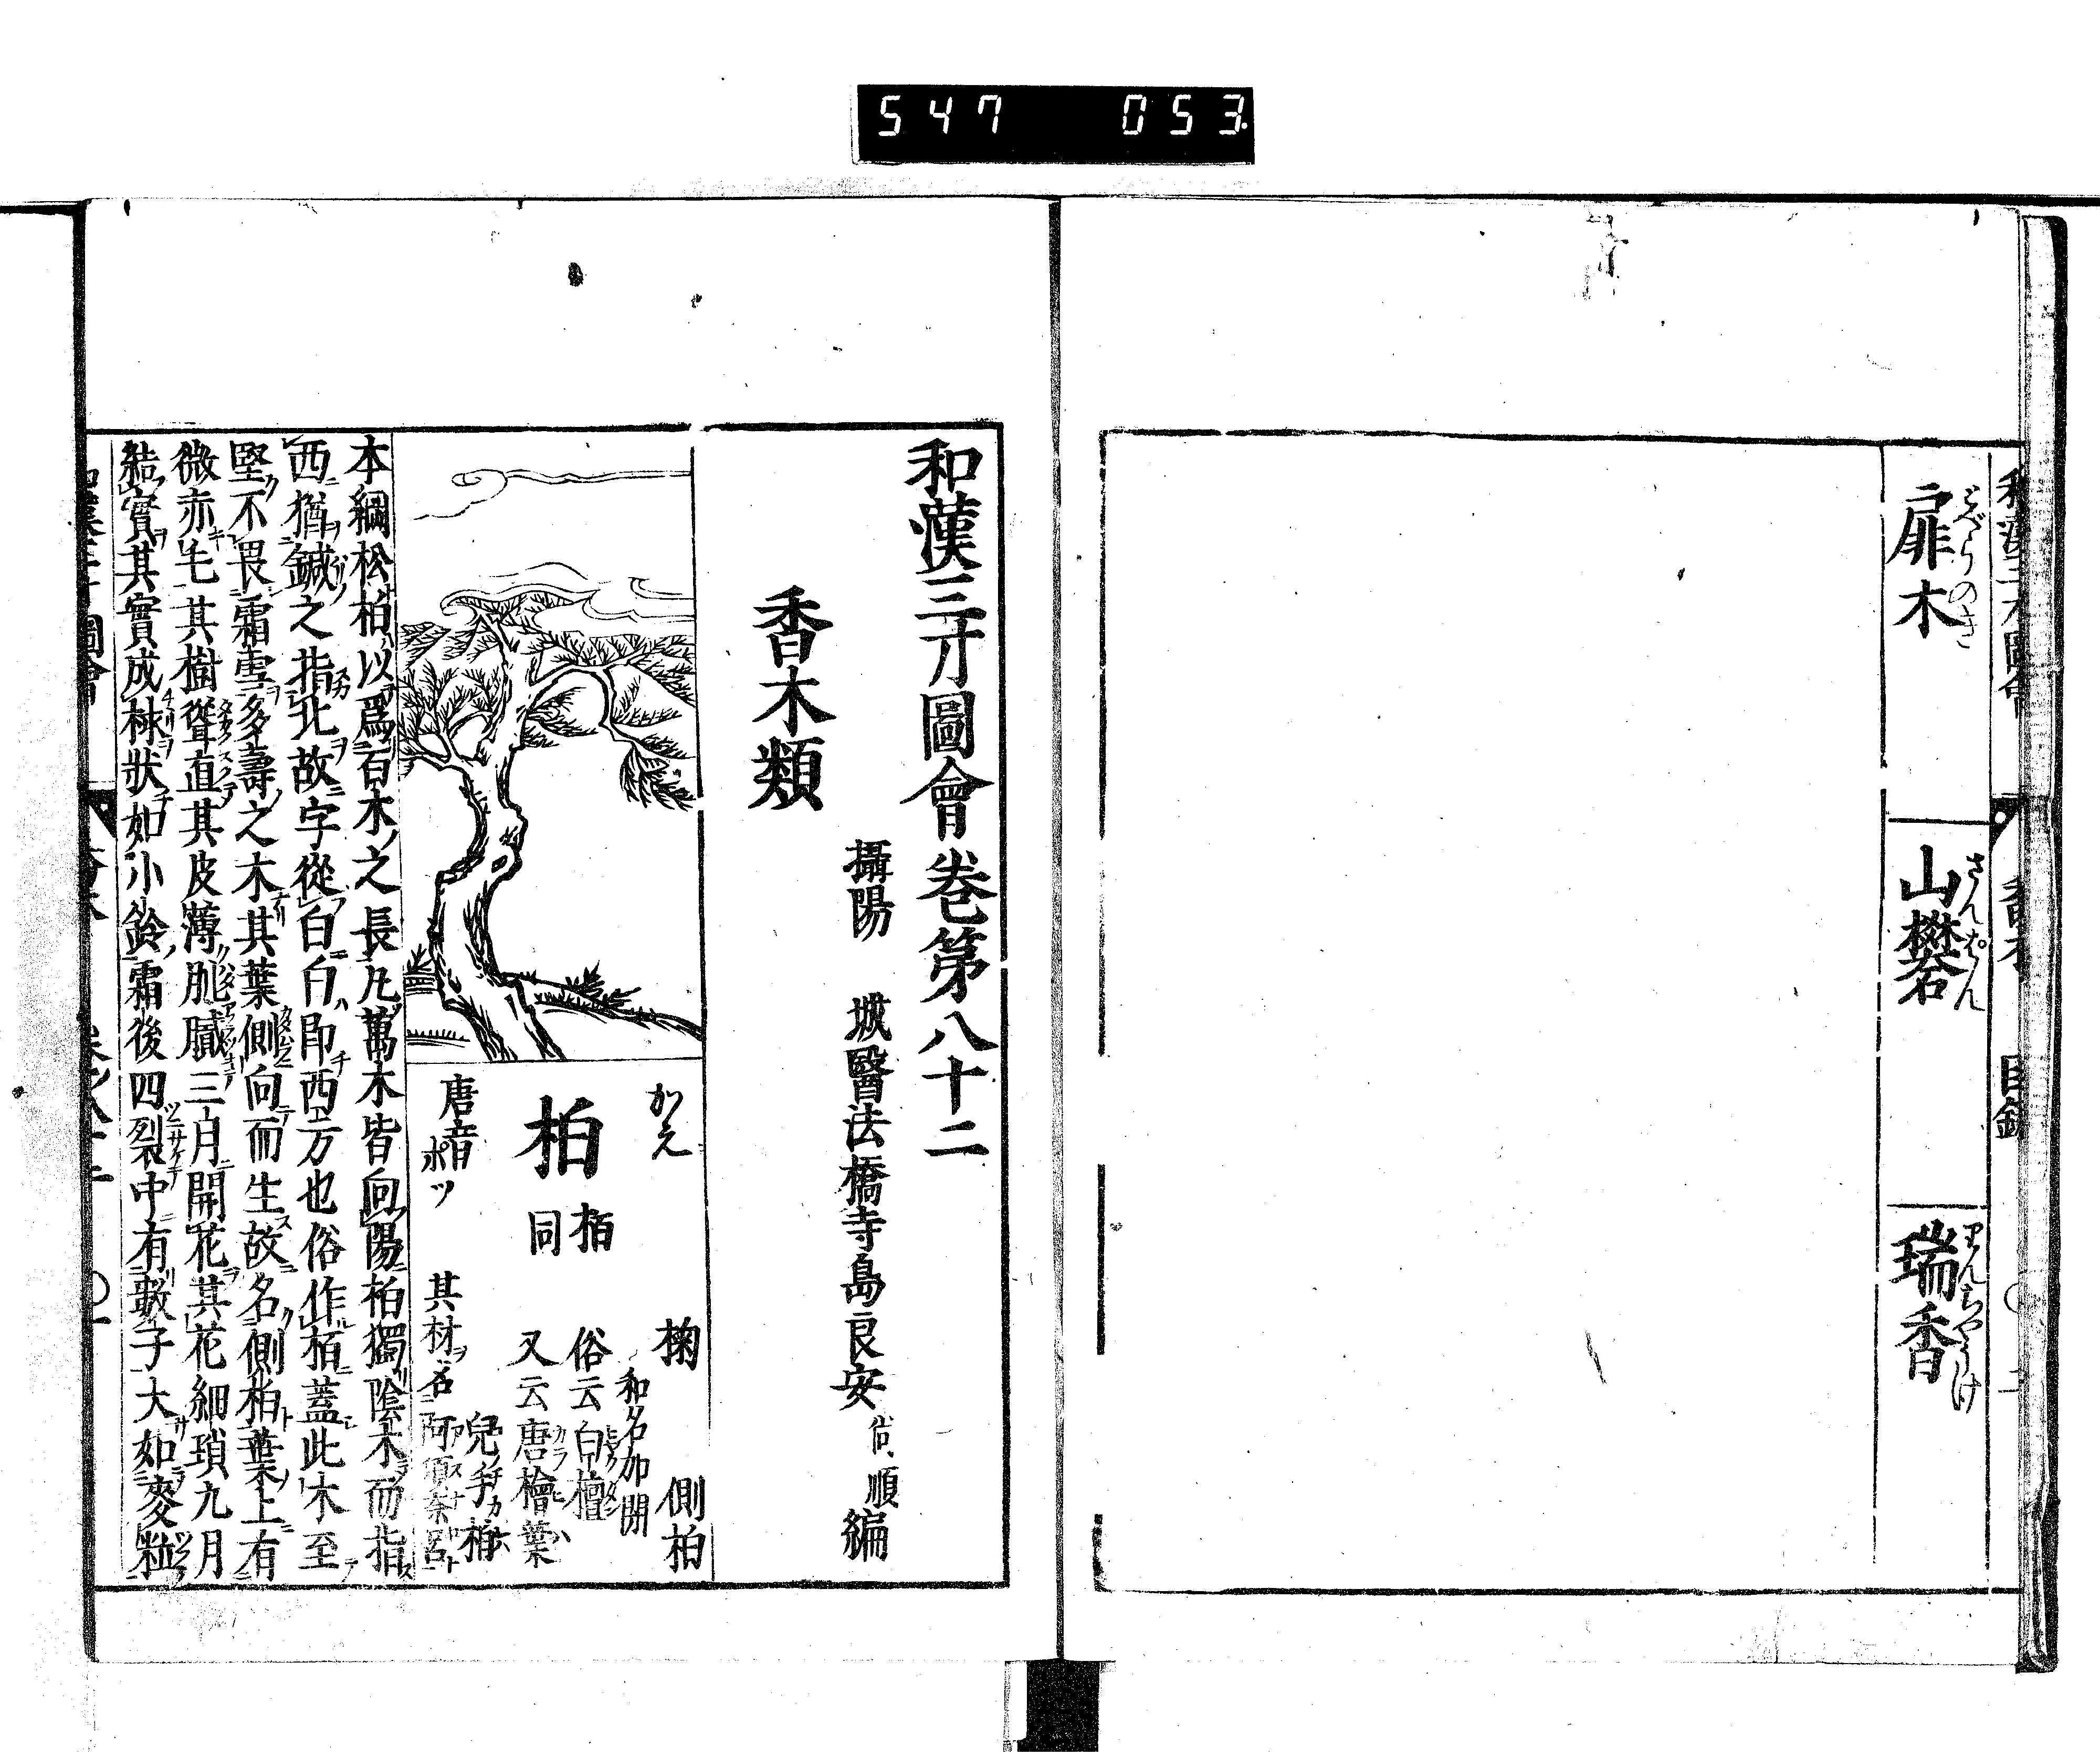 547 053
扉木
とべらのき
山礬
さんばん
瑞香
りんちやうけ
和漢三才圖會卷第八十二
攝陽 城醫法橋寺島良安尚順編
香木類
かえ
柏
栢同
唐音ポツ
椈 側柏
和名加閉
俗云白檀
又云唐檜葉
兒ノ手柏
其材ヲ名阿須奈呂ト
本綱松柏以爲百木之長凡萬木皆向陽柏獨陰木而指
西猶鍼之指北故字從白白即西方也俗作栢蓋此木至
堅不畏霜雪多壽之木其葉側向而生故名側柏葉上有
微赤毛其樹聳直其皮薄肌膩三月開花其花細瑣九月
結實其實成梂狀如小鈴霜後四裂中有數子大如麥粒